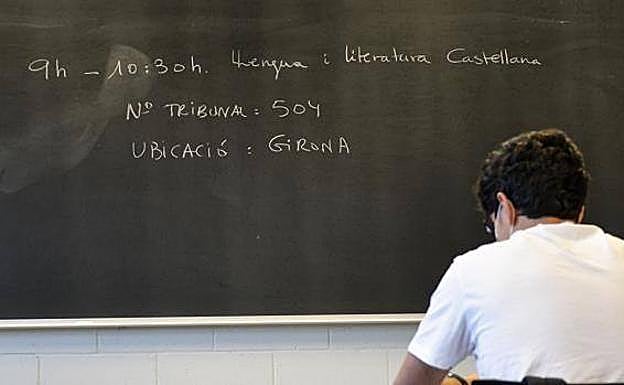 9h - 10:30h. Llengua i literatura Castellana
Nº TRIBUNAL : 504
UBICACIÓ : GIRONA